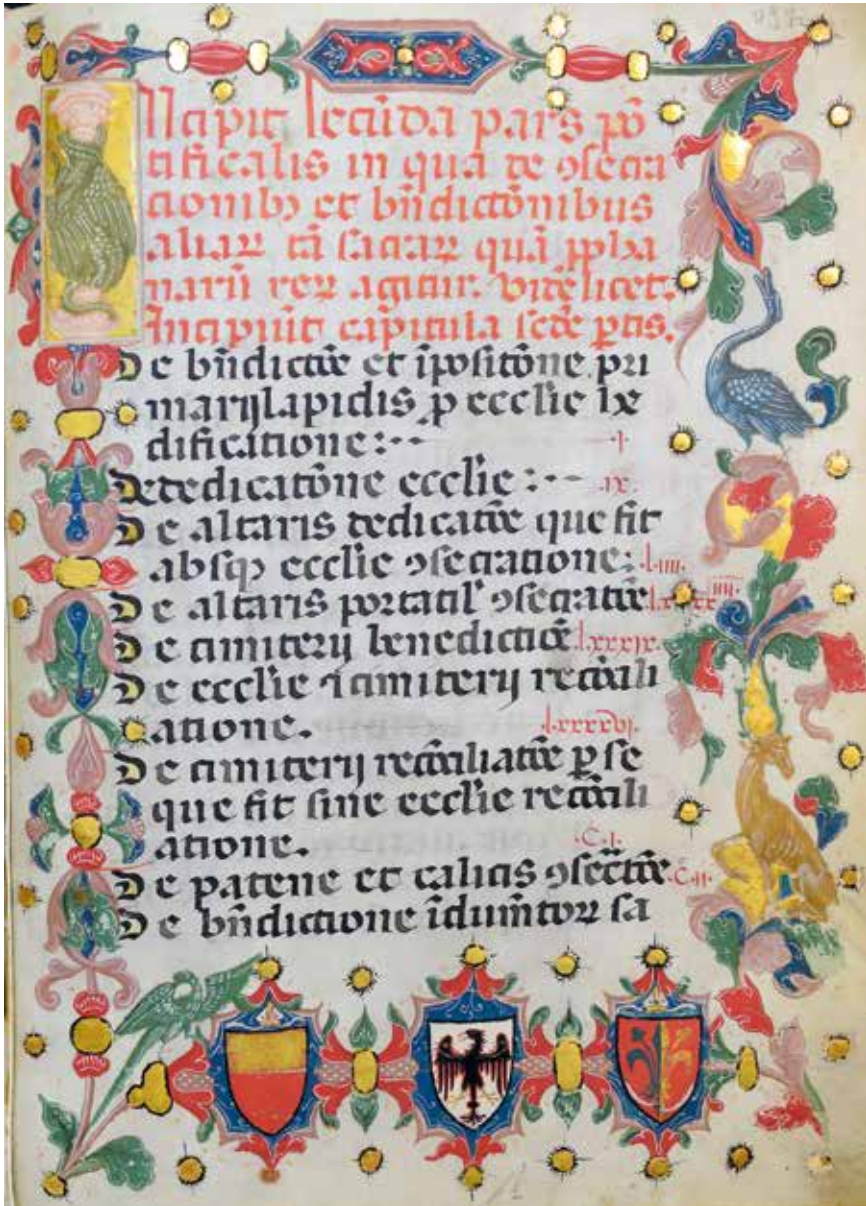 INcipit secūda pars pō
tificalis in qua de ꝯsecra
cionibꝫ et bn̄dictōnibus
aliaꝝ tā sacraꝝ quā ꝓpha
narū reꝝ agitur. videlicet.
Incipiūt capitula scd̄e ꝑtis.
De bn̄dictōe et īpositōne pri
marij lapidis ꝓ ecclīe ix
dificatione: .I.
De dedicatōne ecclīe: .ix.
De altaris dedicatōe que fit
absqꝫ ecclīe ꝯsecratione: .l.iiii.
De altaris portatil' ꝯsecratōe
De cimiterij benedictiōe .lxxxix.
De ecclīe ⁊ cimiterij recōcili
atione. .lxxxxvi.
De cimiterij recōciliatōe ꝑ se
que fit sine ecclīe recōcili
atione. .C.I.
De patene et calicis ꝯsecc̄tōe .C.II.
De bn̄dictione īdum̄toꝝ sa